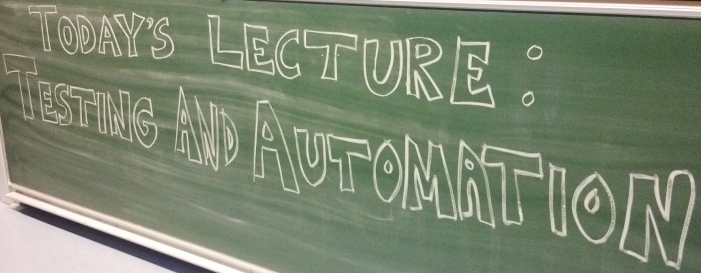 TODAY'S LECTURE:
TESTING AND AUTOMATION